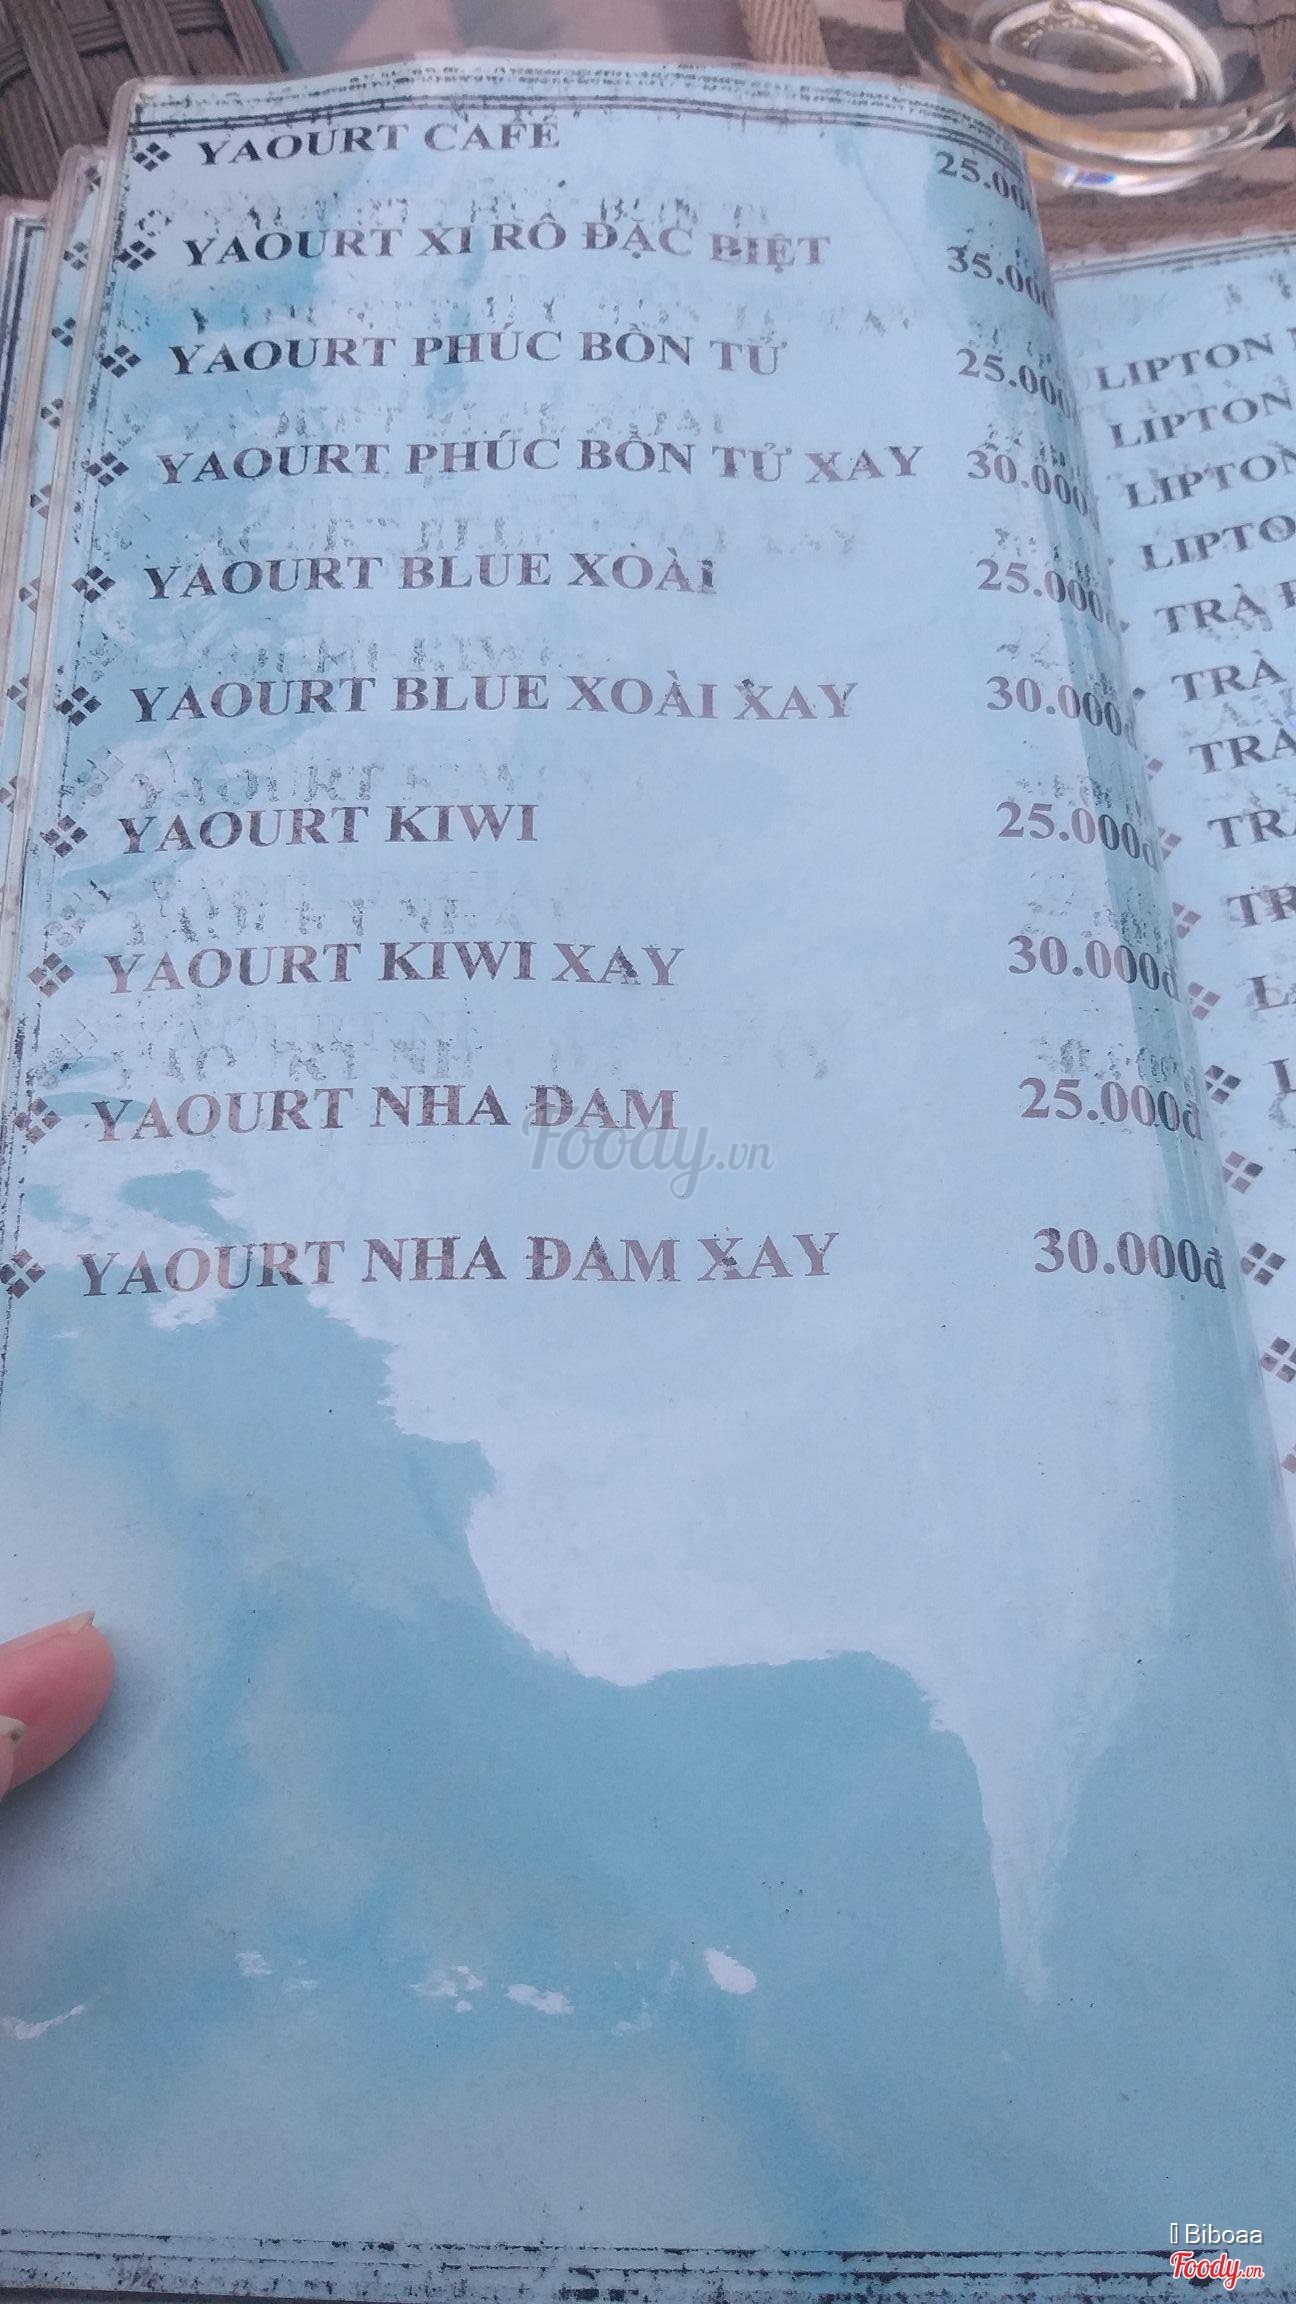 YAOURT CAFÉ 25.00
YAOURT XI RÔ ĐẶC BIỆT 35.000
YAOURT PHÚC BỒN TỬ 25.000
YAOURT PHÚC BỒN TỬ XAY 30.000
YAOURT BLUE XOÀI 25.000
YAOURT BLUE XOÀI XAY 30.000đ
YAOURT KIWI 25.000đ
YAOURT KIWI XAY 30.000đ
YAOURT NHA ĐAM 25.000đ
YAOURT NHA ĐAM XAY 30.000đ
LIPTON
LIPTON
LIPTON
LIPTO
TRÀ
TRÀ
TRÀ
Foody.vn
Biboaa
Foody.vn